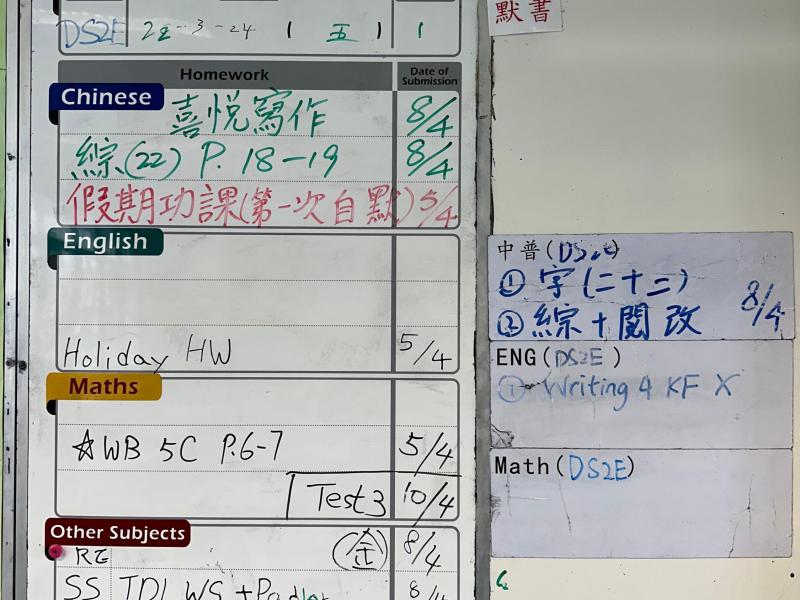 默書
DS2E 22-3-24 ( 五 ) 1
Homework Date of Submission
Chinese
喜悅寫作 8/4
綜(22) P. 18-19 8/4
假期功課(第一次自默) 5/4
English
Holiday HW 5/4
Maths
☆WB 5C P.6-7 5/4
Test 3 10/4
Other Subjects
RE (金) 8/4
SS TDI WS + 8/4
中普(DS2E)
① 字(二十二)
② 綜+閱改 8/4
ENG(DS2E)
① Writing 4 KF X
Math(DS2E)